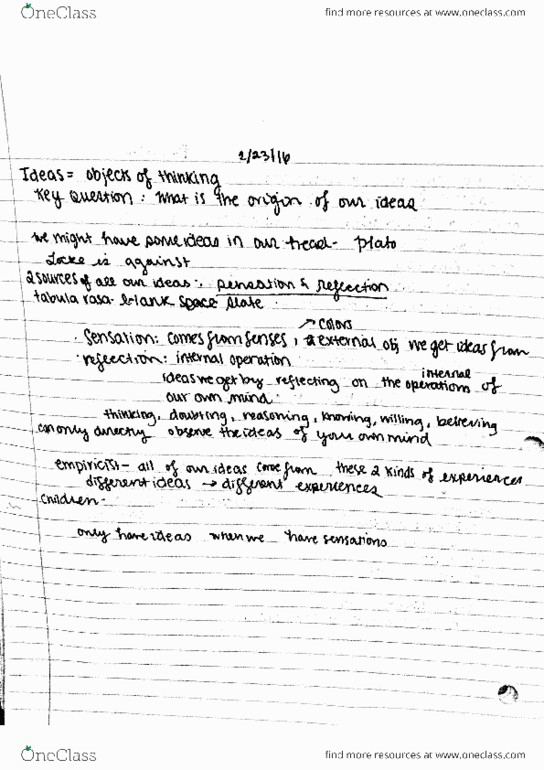 OneClass
find more resources at www.oneclass.com
2/23/16
Ideas = objects of thinking
Key Question: What is the origin of our ideas
we might have some ideas in our head- Plato
Locke is against
2 sources of all our ideas: sensation & reflection
tabula rasa- blank space slate
· Sensation: comes from senses, external obj we get ideas from
→ colors
· reflection: internal operation
ideas we get by reflecting on the internal operations of
our own mind
thinking, doubting, reasoning, knowing, willing, believing
can only directly observe the ideas of your own mind
empiricist- all of our ideas come from these 2 kinds of experiences
different ideas → different experiences
Children-
only have ideas when we have sensations
OneClass
find more resources at www.oneclass.com